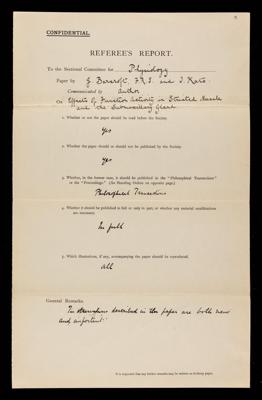 CONFIDENTIAL.
REFEREE'S REPORT.
To the Sectional Committee for Physiology
Paper by J. Barcroft, F.R.S. and T. Kato
Communicated by author
On Effects of Function Activity in Striated Muscle
and the Submaxillary Gland
1. Whether or not the paper should be read before the Society.
Yes
2. Whether the paper should or should not be published by the Society.
Yes
3. Whether, in the former case, it should be published in the "Philosophical Transactions"
or the "Proceedings." (See Standing Orders on opposite page.)
Philosophical Transactions
4. Whether it should be published in full or only in part; or whether any material modifications
are necessary.
In full
5. Which illustrations, if any, accompanying the paper should be reproduced.
all
General Remarks.
The described in this paper are both new
and important.
It is requested that any further remarks may be written on foolscap paper.